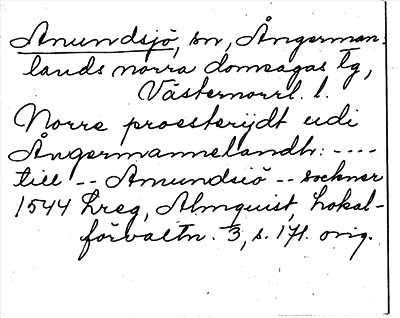 Anundsjö, sn, Ångerman-
lands norra domsagas tg,
Västernorrl. l.
Norre proesterijdt udi
Ångermannelandh: ----
till -- Amundsiö -- sockner
1544 Lreg, Almquist, Lokal-
förvaltn. 3, s. 171. orig.